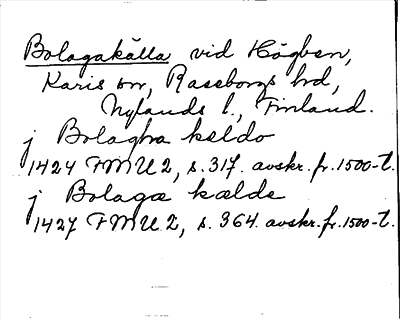 Bolagakälla vid Högben,
Karis sn, Raseborgs hrd,
Nylands l., Finland.
j Bolagha keldo
1424 FMU 2, s. 317. avskr. fr. 1500-t.
j Bolagæ kælde
1427 FMU 2, s. 364. avskr. fr. 1500-t.